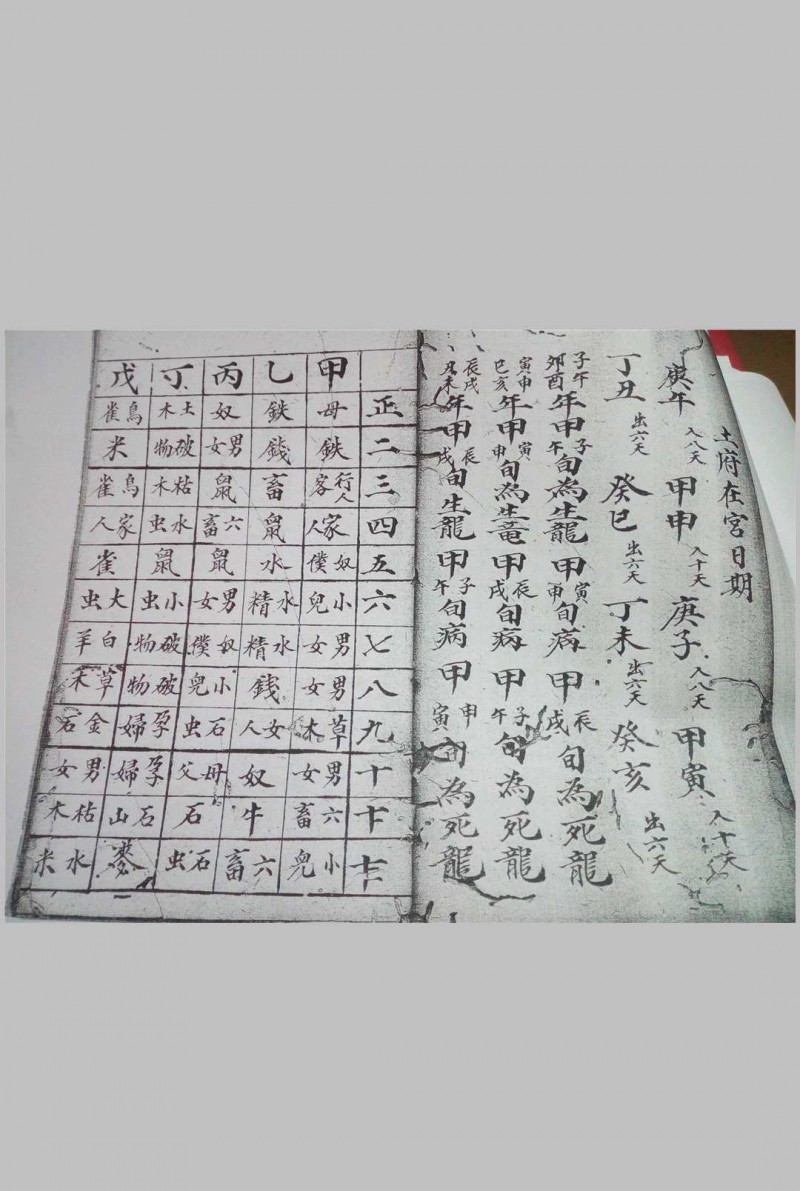 土府在宮日期
庚午 入八天 甲申 入十天 庚子 入八天 甲寅 入十天
丁丑 出六天 癸巳 出六天 丁未 出六天 癸亥 出六天
子午卯酉年甲子甲午旬為生龍甲寅申旬病甲辰戌旬為死龍
寅申巳亥年甲寅申旬為生竜甲辰戌旬病甲子午旬為死龍
辰戌丑未年甲辰戌旬生龍甲子午旬病甲申寅旬為死龍
甲 乙 丙 丁 戊
正 母 鉄 奴 土木 鳥雀
二 鉄 錢 男女 破物 米
三 行人客 畜 鼠 枯木 鳥雀
四 家人 鼠 六畜 水虫 家人
五 奴僕 水 鼠 鼠 雀
六 小兒 水精 男女 小虫 大虫
七 男女 水精 奴僕 破物 白羊
八 男女 錢 小兒 破物 草木
九 草木 女人 石虫 孕婦 金石
十 男女 奴 母父 孕婦 男女
十一 六畜 牛 石 石山 枯木
十二 小兒 六畜 石虫 水米